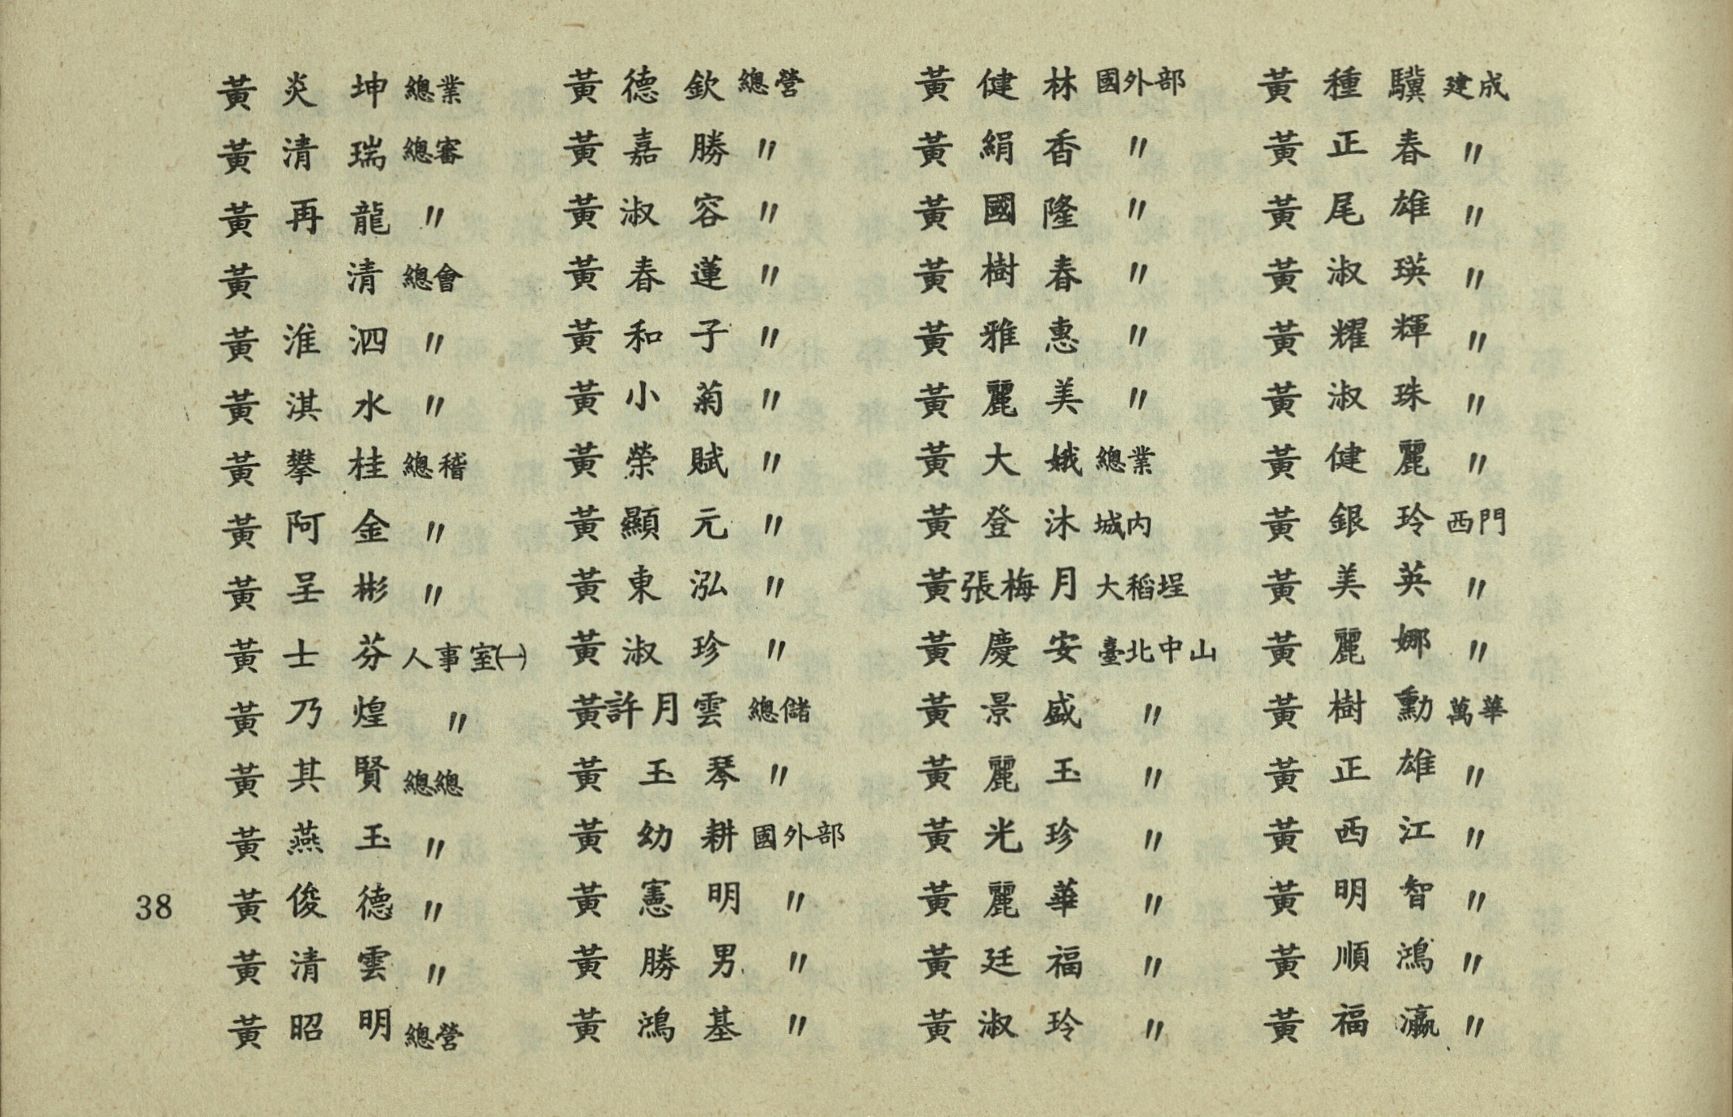 黃炎坤 總業
黃清瑞 總審
黃再龍 〃
黃　清 總會
黃淮泗 〃
黃淇水 〃
黃攀桂 總稽
黃阿金 〃
黃呈彬 〃
黃士芬 人事室(一)
黃乃煌 〃
黃其賢 總總
黃燕玉 〃
黃俊德 〃
黃清雲 〃
黃昭明 總營
黃德欽 總營
黃嘉勝 〃
黃淑容 〃
黃春蓮 〃
黃和子 〃
黃小菊 〃
黃榮賦 〃
黃顯元 〃
黃東泓 〃
黃淑珍 〃
黃許月雲 總儲
黃玉琴 〃
黃幼耕 國外部
黃憲明 〃
黃勝男 〃
黃鴻基 〃
黃健林 國外部
黃絹香 〃
黃國隆 〃
黃樹春 〃
黃雅惠 〃
黃麗美 〃
黃大娥 總業
黃登沐 城內
黃張梅月 大稻埕
黃慶安 臺北中山
黃景盛 〃
黃麗玉 〃
黃光珍 〃
黃麗華 〃
黃廷福 〃
黃淑玲 〃
黃種驥 建成
黃正春 〃
黃尾雄 〃
黃淑瑛 〃
黃耀輝 〃
黃淑珠 〃
黃健麗 〃
黃銀玲 西門
黃美英 〃
黃麗娜 〃
黃樹勳 萬華
黃正雄 〃
黃西江 〃
黃明智 〃
黃順鴻 〃
黃福瀛 〃
38